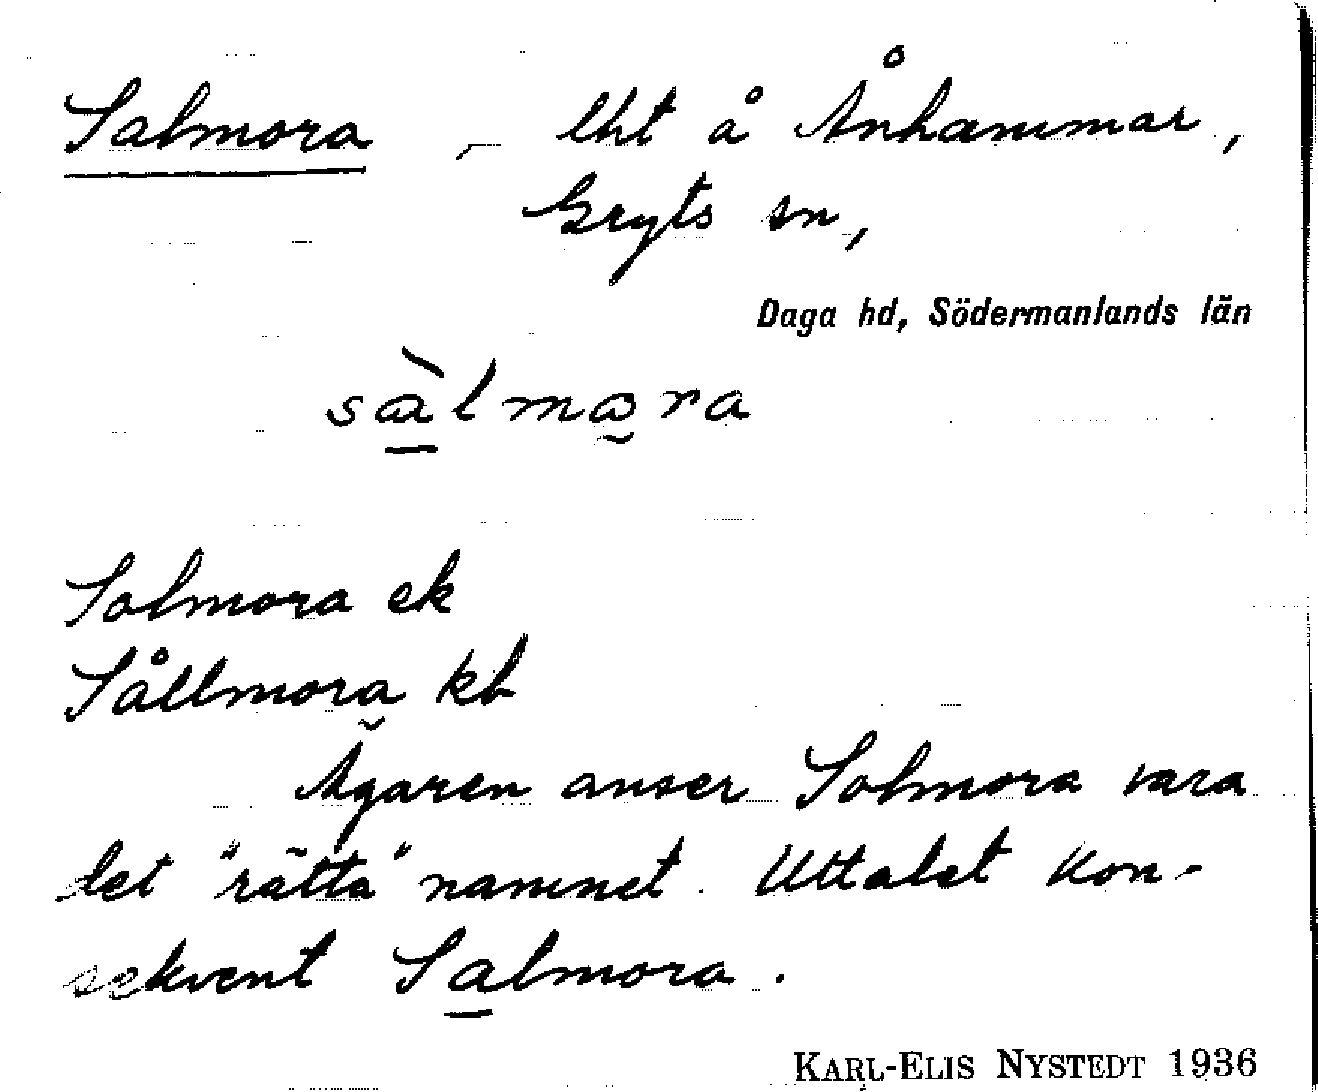 Salmora, lht å Ånhammar,
Gryts sn,
Daga hd, Södermanlands län
sàlmara
Solmora ek
Sållmora kb
Ägaren anser Solmora vara
det "rätta" namnet. Uttalet kon-
sekvent Salmora.
KARL-ELIS NYSTEDT 1936